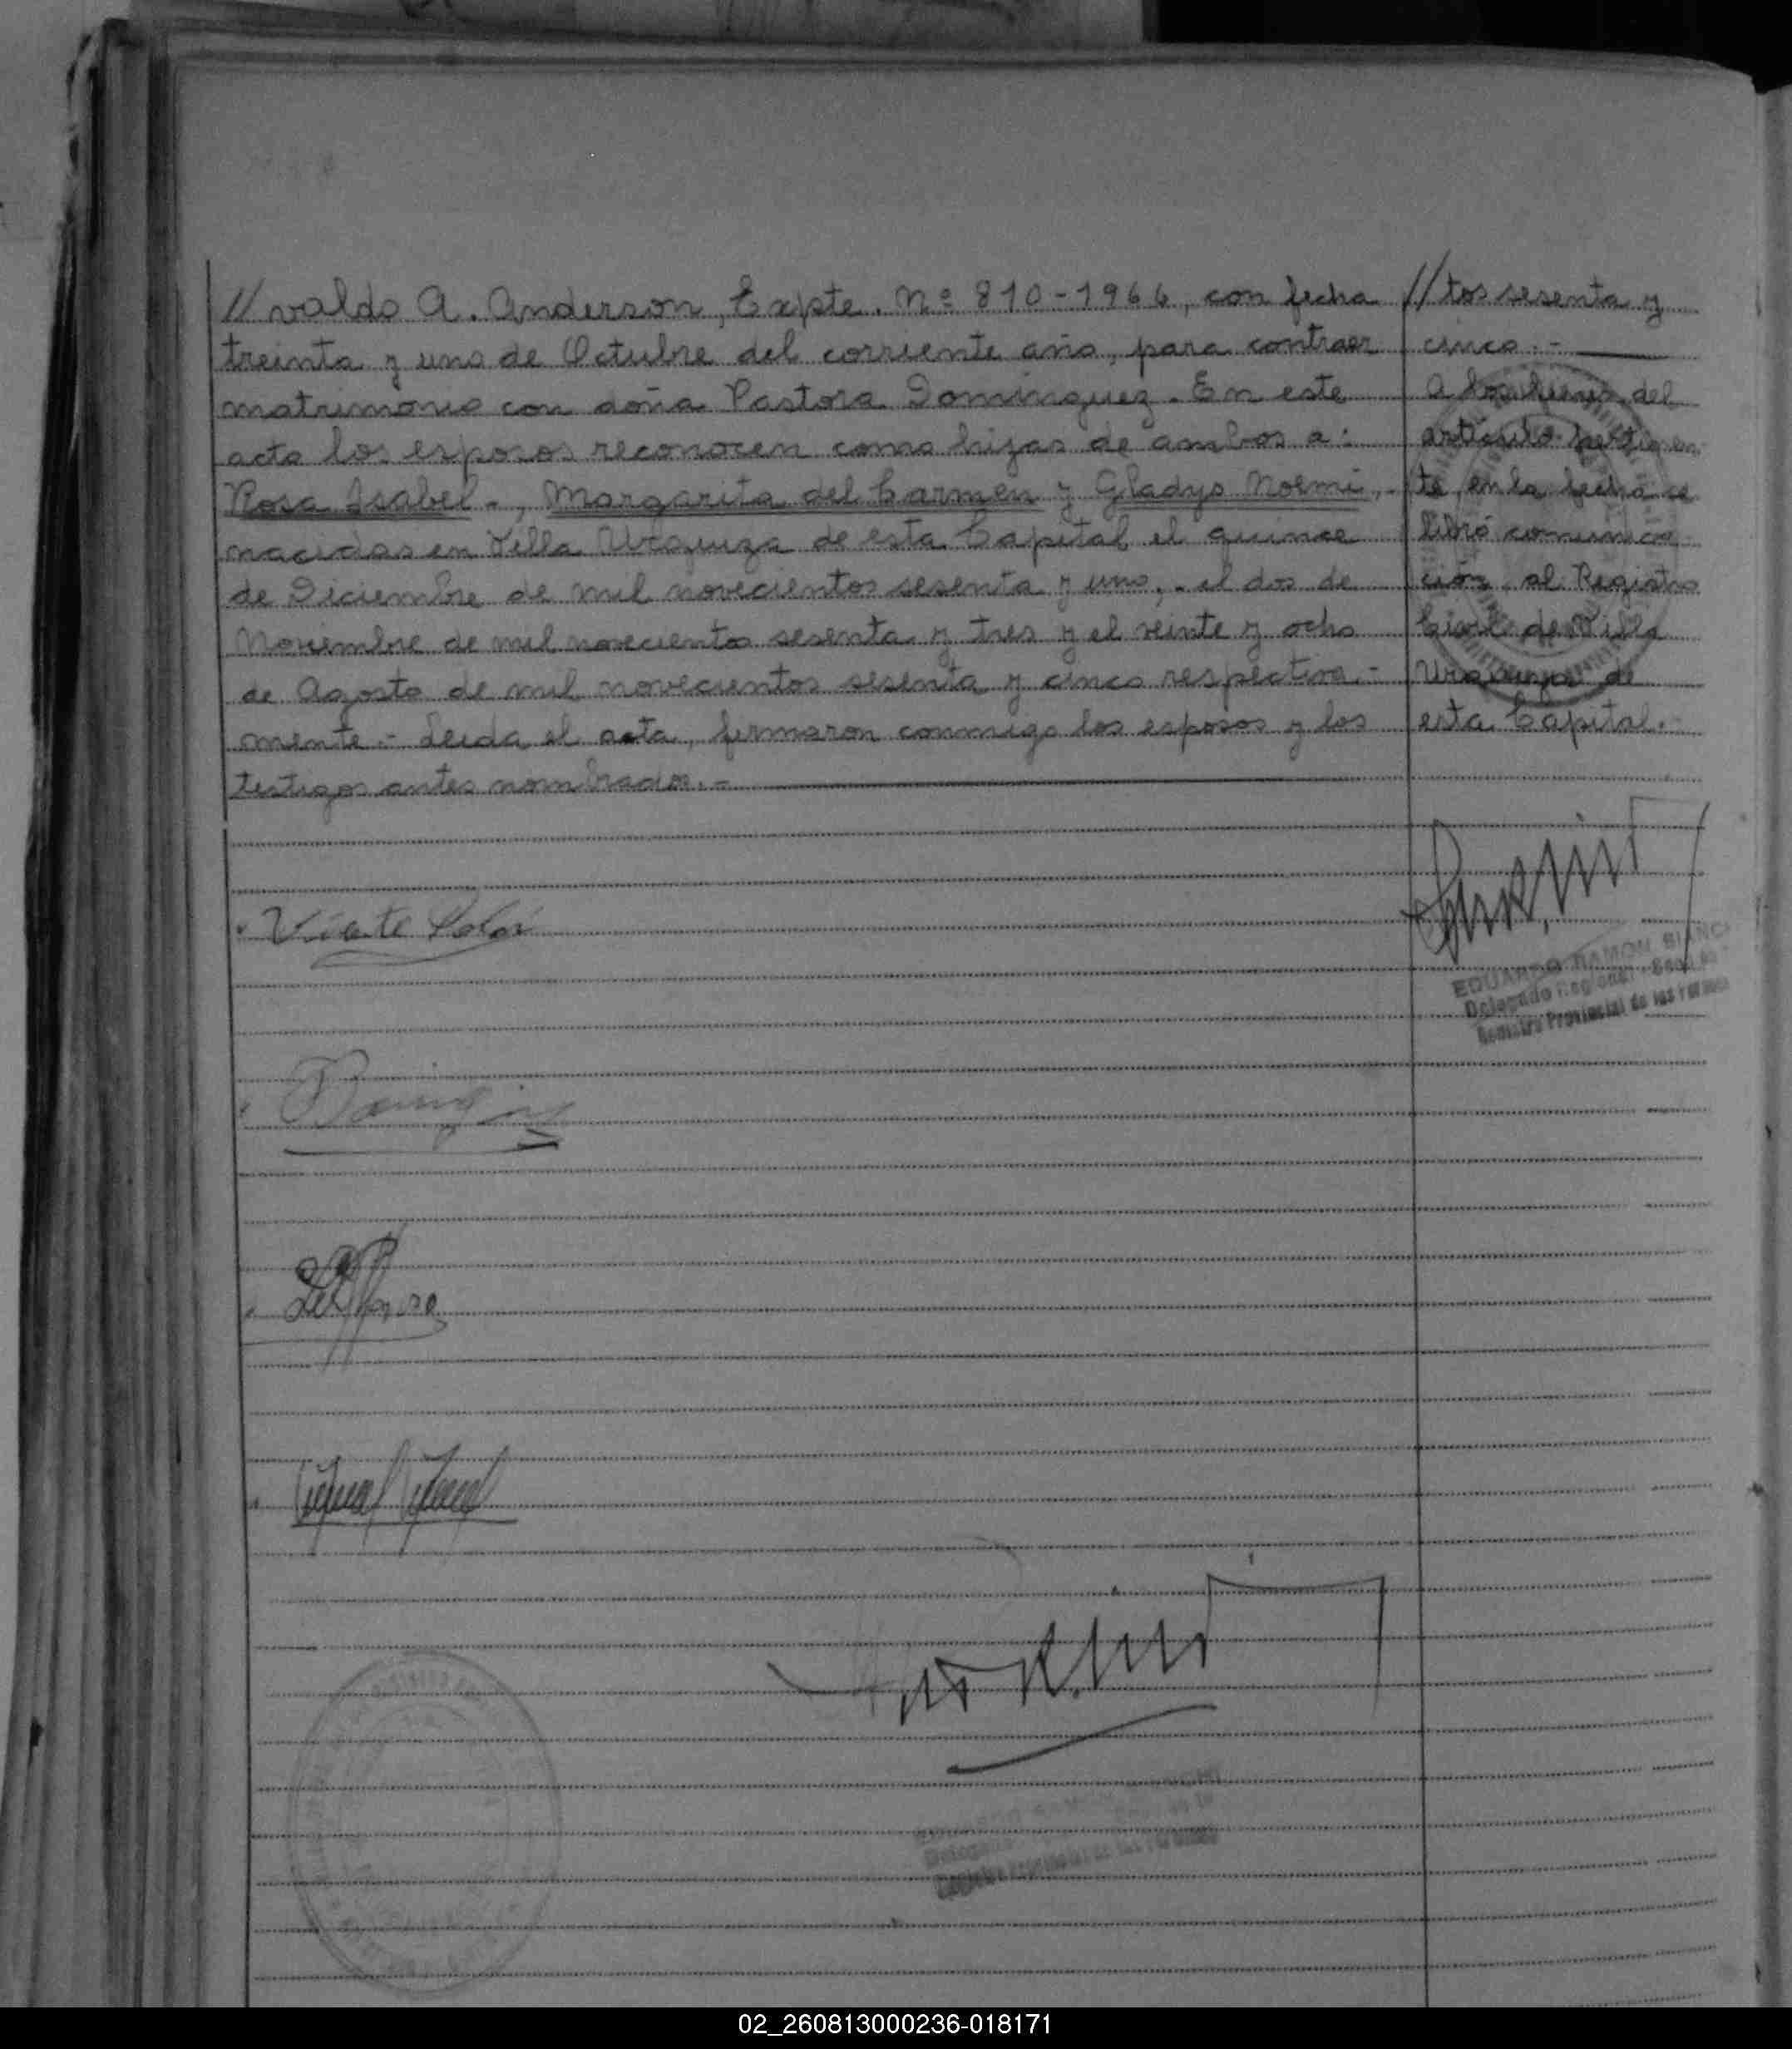 //valdo A. Anderson, Expte. Nº 810-1966, con fecha
treinta y uno de Octubre del corriente año, para contraer
matrimonio con doña Pastora Dominguez. En este
acto los esposos reconocen como hijas de ambos a:
Rosa Isabel -, Margarita del Carmen y Gladys Noemi,-
nacidas en Villa Urquiza de esta Capital el quince
de Diciembre de mil novecientos sesenta y uno,- el dos de
Noviembre de mil novecientos sesenta y tres y el veinte y ocho
de Agosto de mil novecientos sesenta y cinco respectiva-
mente.- Leida el acta, firmaron conmigo los esposos y los
testigos antes nombrados.-
//tos sesenta y
cinco.-
A los fines del
artículo pertinen-
te, en la fecha se
libró comunica-
ción al Registro
Civil de Villa
Urquiza de
esta Capital.-
EDUARDO RAMON BIANCHI
Delegado Regional
Registro Provincial de las Personas
02_260813000236-018171